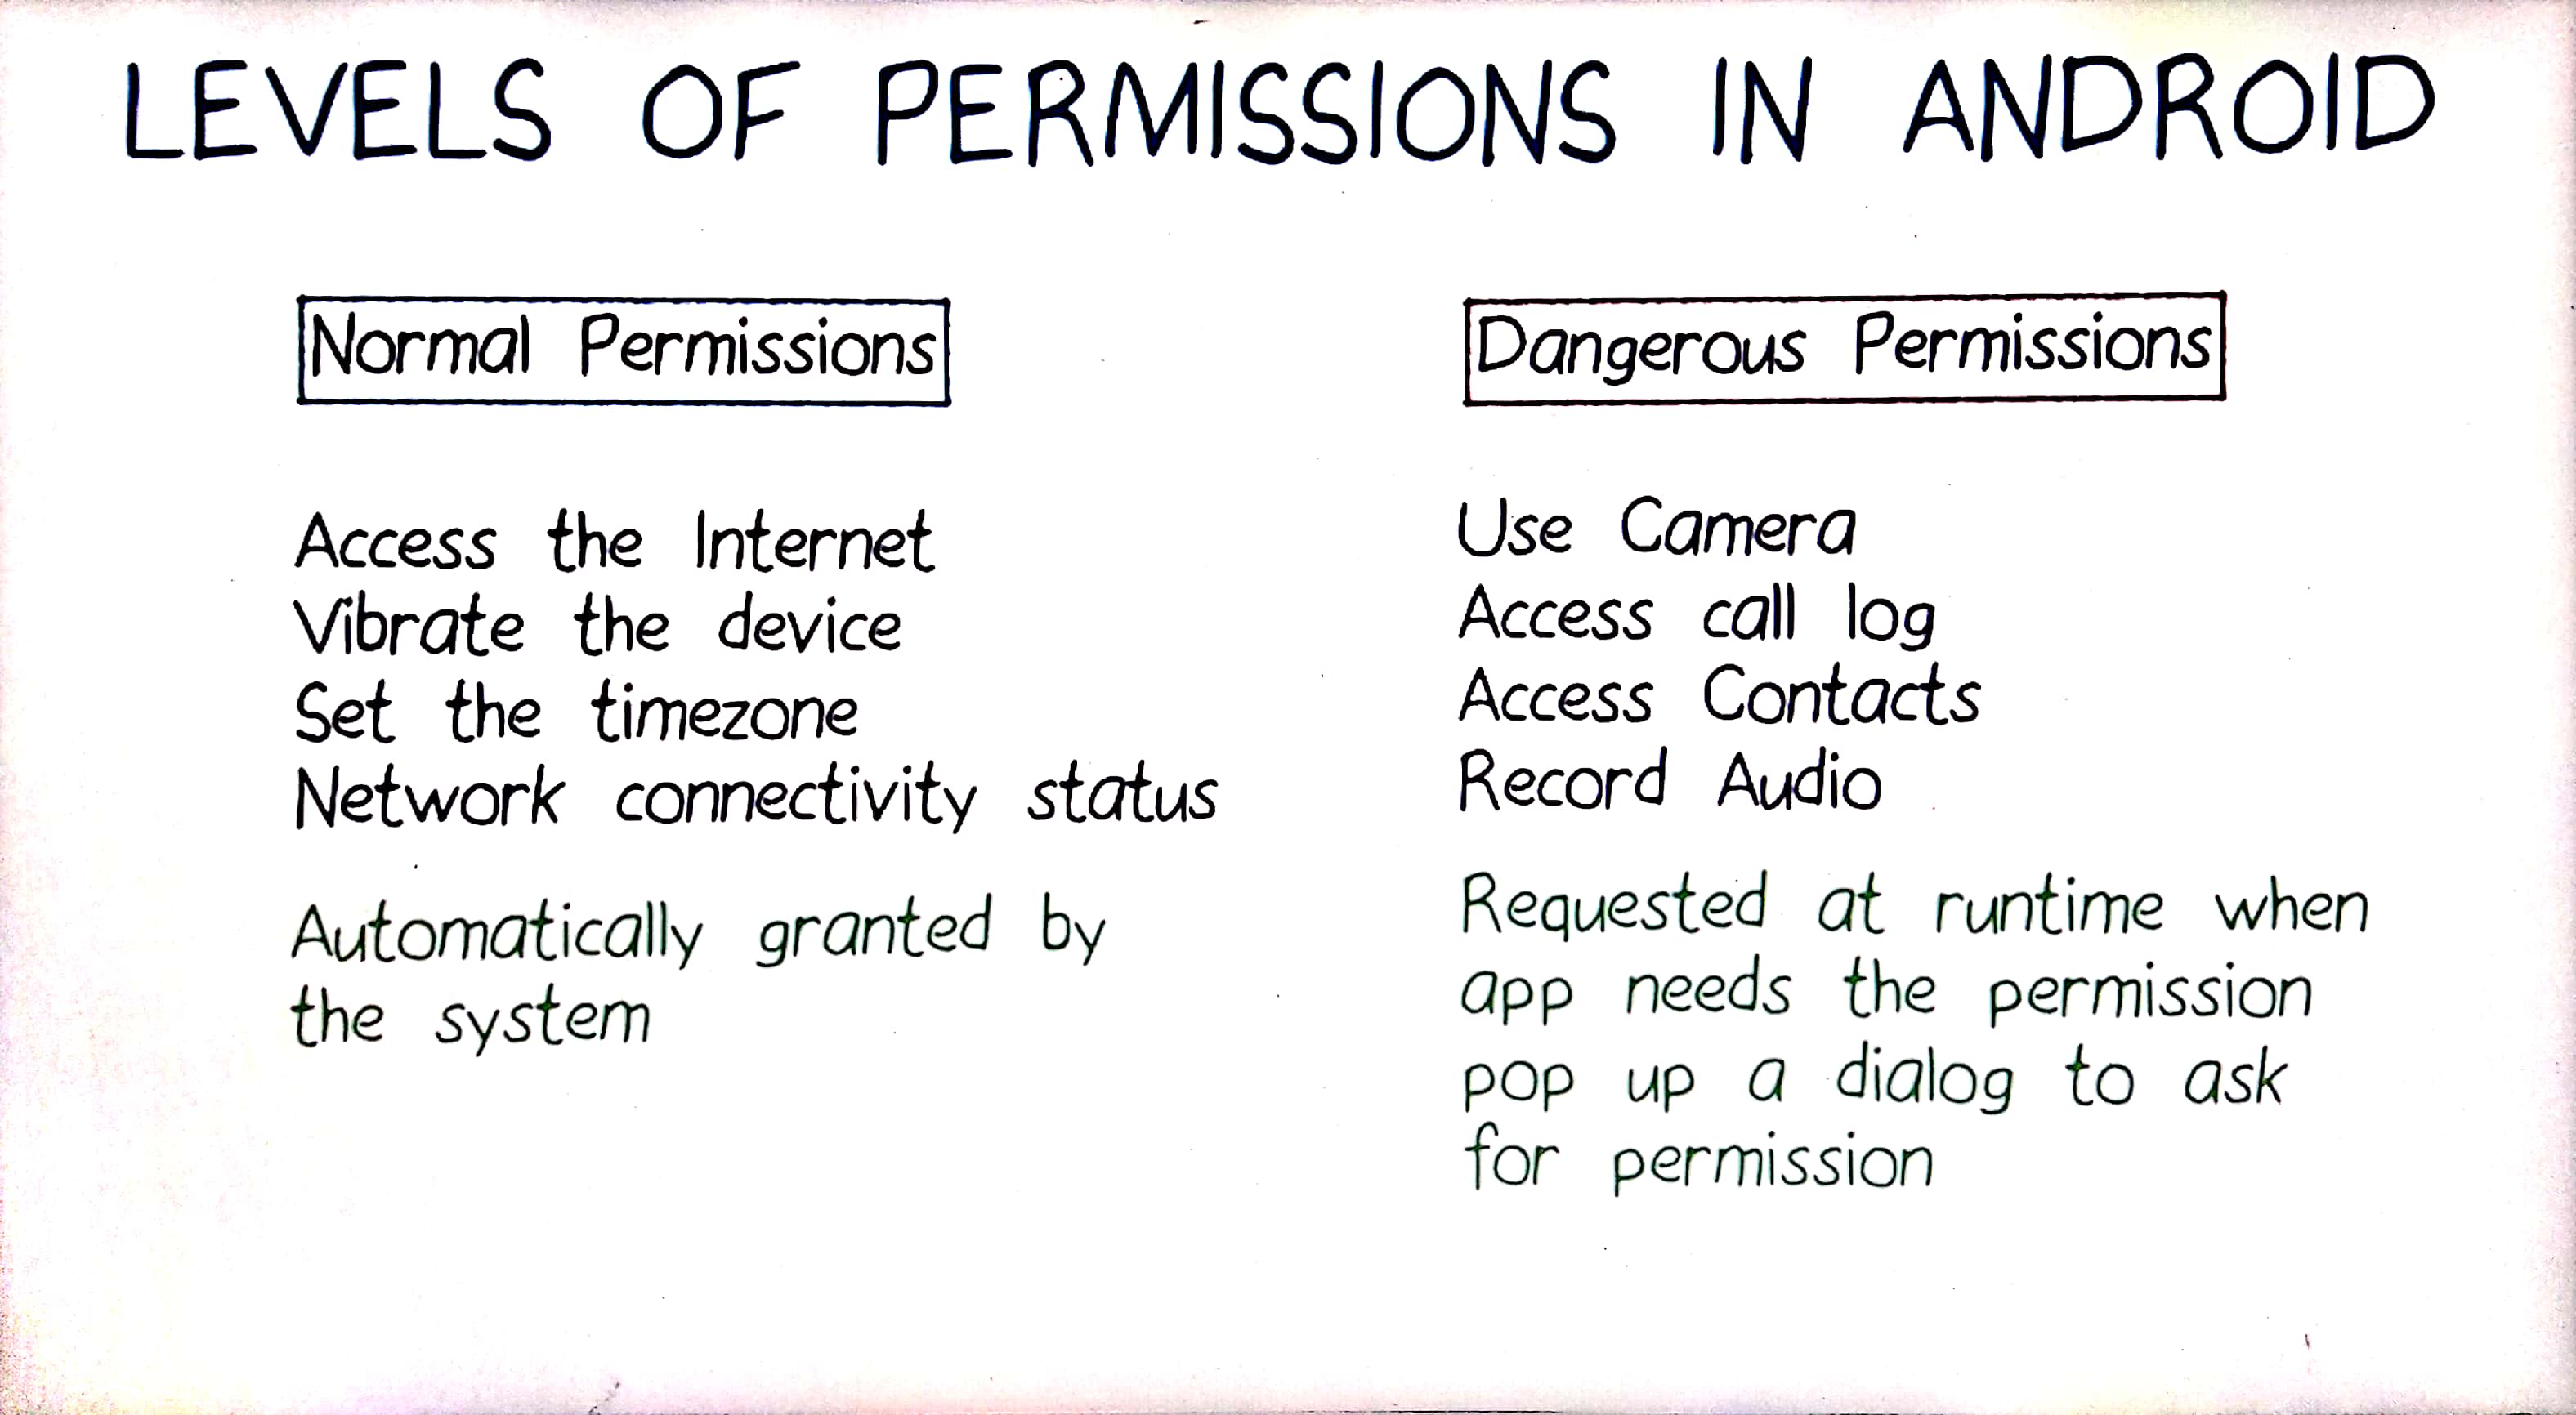 LEVELS OF PERMISSIONS IN ANDROID
Normal Permissions
Access the Internet
Vibrate the device
Set the timezone
Network connectivity status
Automatically granted by
the system
Dangerous Permissions
Use Camera
Access call log
Access Contacts
Record Audio
Requested at runtime when
app needs the permission
pop up a dialog to ask
for permission